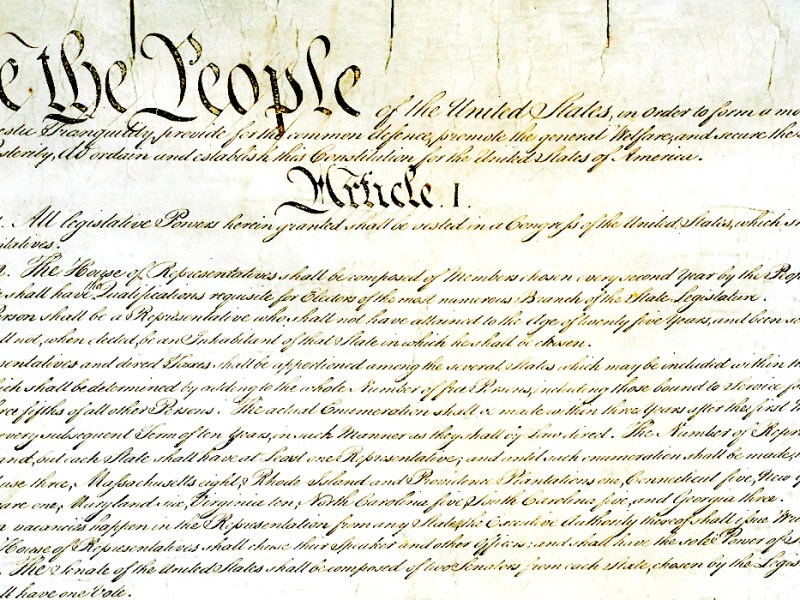 e the People of the United States, in Order to form a mo
estic Tranquility, provide for the common defence, promote the general Welfare, and secure the
osterity, do ordain and establish this Constitution for the United States of America.
Article. I.
. All legislative Powers herein granted shall be vested in a Congress of the United States, which s
ntatives.
. The House of Representatives shall be composed of Members chosen every second Year by the Peop
shall have the Qualifications requisite for Electors of the most numerous Branch of the State Legislature.
Person shall be a Representative who shall not have attained to the Age of twenty five Years, and been
ll not, when elected, be an Inhabitant of that State in which he shall be chosen.
esentatives and direct Taxes shall be apportioned among the several States which may be included within th
ich shall be determined by adding to the whole Number of free Persons, including those bound to Service fo
ree fifths of all other Persons. The actual Enumeration shall be made within three Years after the first
every subsequent Term of ten Years, in such Manner as they shall by Law direct. The Number of Repre
and, but each State shall have at Least one Representative; and until such enumeration shall be made,
use three, Massachusetts eight, Rhode Island and Providence Plantations one, Connecticut five, New
are one, Maryland six, Virginia ten, North Carolina five, South Carolina five, and Georgia three.
n vacancies happen in the Representation from any State, the Executive Authority thereof shall issue Wri
House of Representatives shall chuse their Speaker and other Officers; and shall have the sole Power of
. The Senate of the United States shall be composed of two Senators from each State, chosen by the Legis
ll have one Vote.